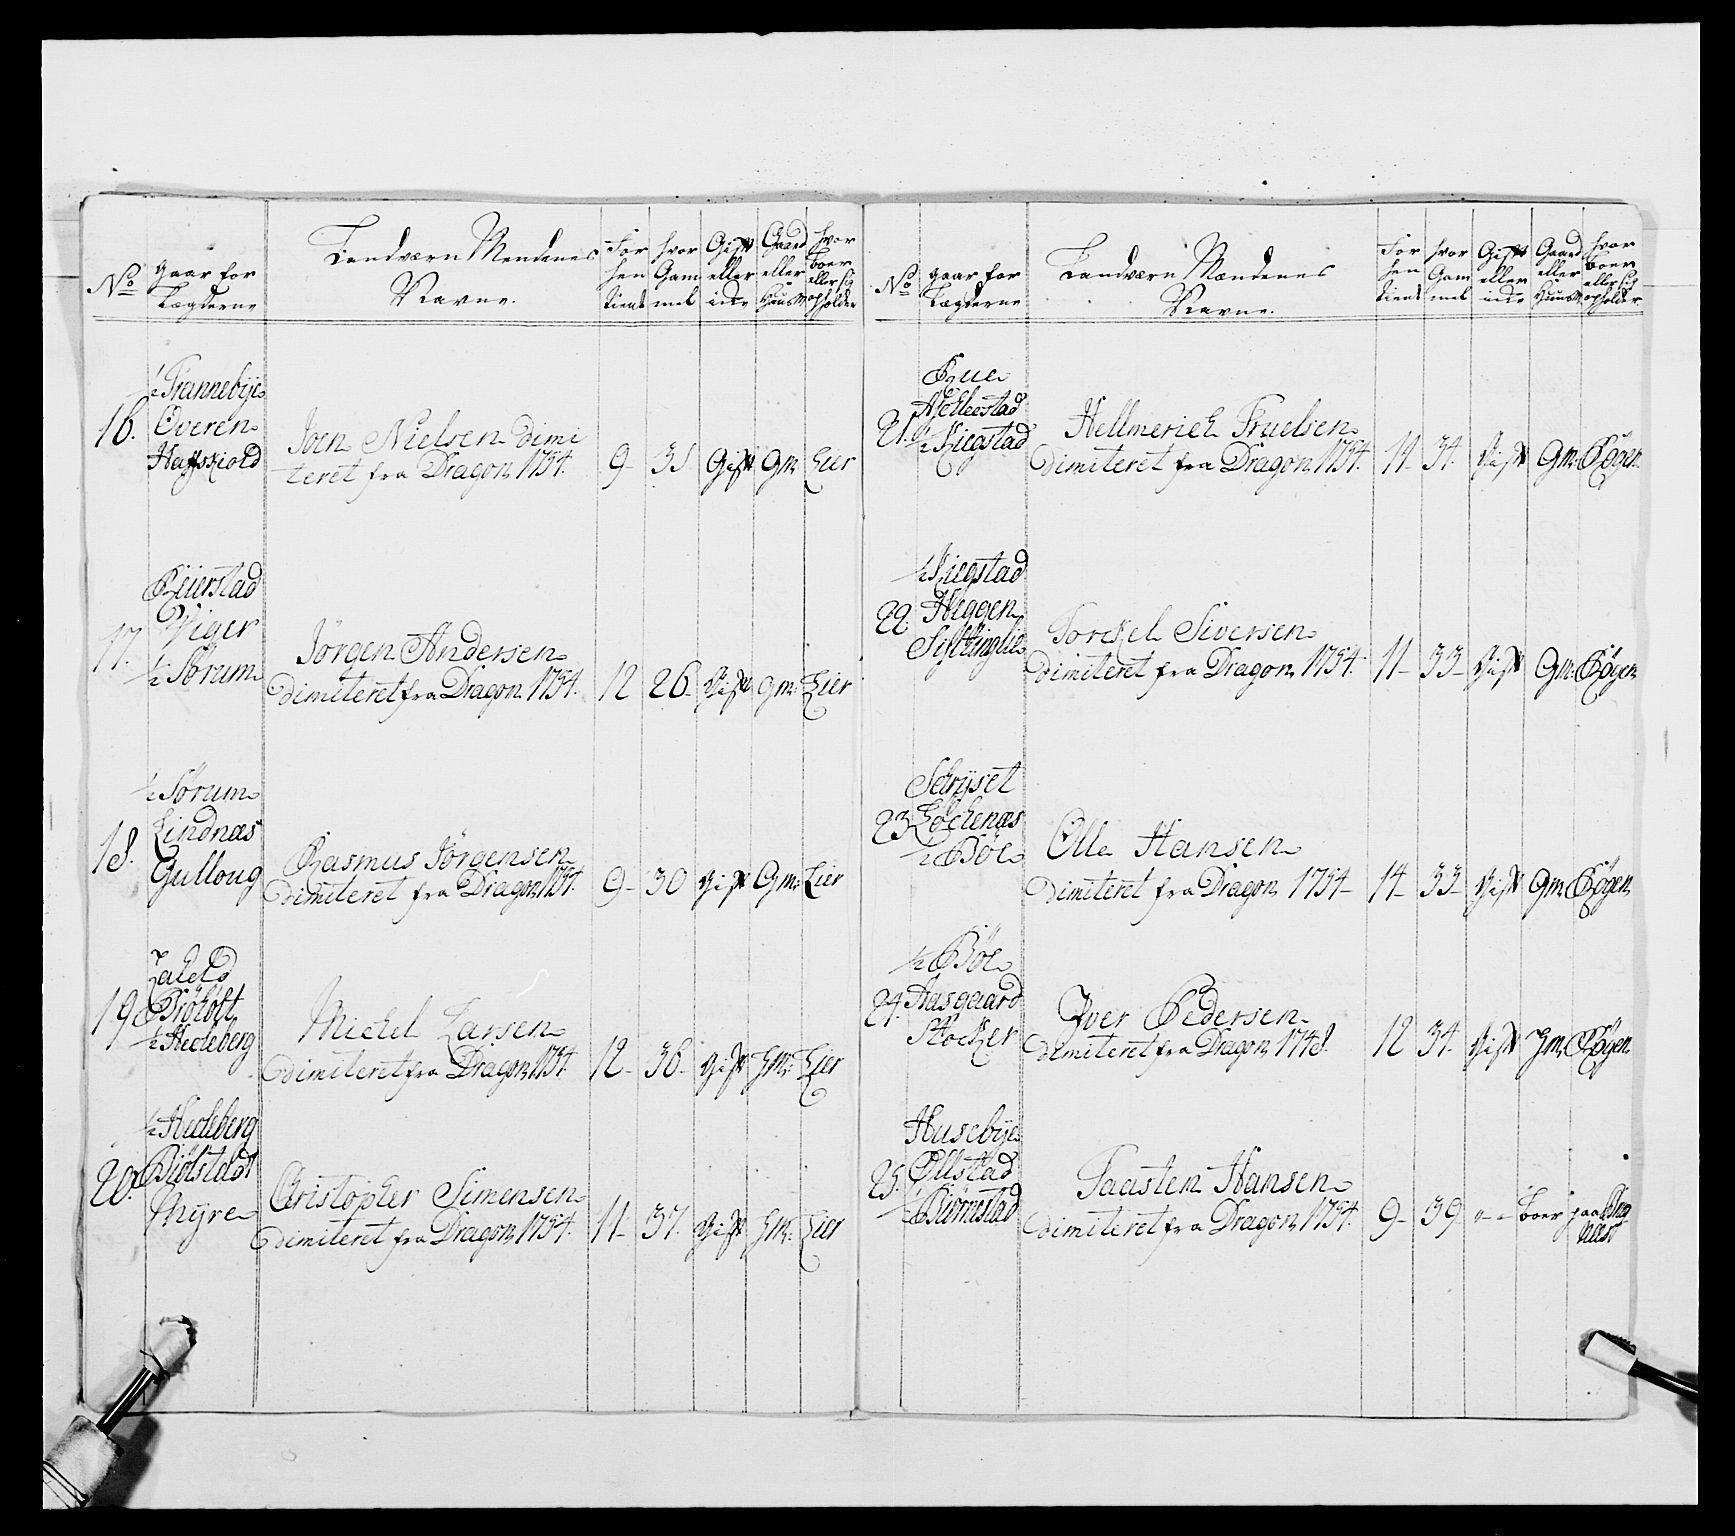 No
gaar for
Lægderne
Landværn Mendenes
Navne.
For
hen
tient
hvor
Gam
mel
Gift
eller
inde
Gaard
eller
Huusm
hvor
boer
eller sig
opholder
16.
½ Trannebÿe
Overen
Joen Nielsen dimi
teret fra Dragon 1754.
9
35
Gift
Gm
Lier
17.
Kjierstad
Viger
½ Sørum
Jørgen Andersen
dimiteret fra Dragon 1754.
12
26
Gift
Gm:
Lier
18.
½ Sørum
Lindnæs
Gulloug
Rasmus Jørgensen
Dimiteret fra Dragon 1754.
9
30
Gift
Gm:
Lier
19
½ Hecleberg
Michel Larsen
Dimiteret fra Dragon 1754
12
36
Gift
Hm:
Lier
20.
½ Hecleberg
Mÿre
Christopher Simensen
dimiteret fra Dragon 1754.
11
37.
Gift
Hm:
Lier
No
gaar for
Lægderne
Landværn Mændenes
Navne.
For
hen
tient
hvor
Gam
mel
Gift
eller
inde
Gaard
eller
Huusm
hvor
boer
eller sig
opholder
21.
Rue
½ Kiegstad
Hellmerich Truelsen
Dimiteret fra Dragon 1754.
14
34.
Gift
Gm:
Røgen
22
½ Kiegstad
Heggen
Torckel Siversen
Dimiteret fra Dragon 1754.
11
33
Gift
Gm:
Røgen
23
Schrÿset
Løchenæs
½ Bøe
Olle Hansen
Dimiteret fra Dragon 1754
14
33
Gift
Gm
Røgen
24.
½ Bøe
Aasgaard
Stocker
Iver Pedersen
dimiteret fra Dragon 1748.
12
34.
Gift
Hm
Røgen
25.
Husebÿe
Ollstad
½ Biørnstad
Taasten Hansen
dimiteret fra Dragon 1754.
9
39
boer
paa